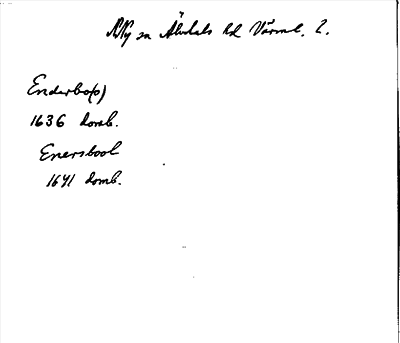 Ny sn Älvdals hd Värml. l.
Enderbo(o)
1636 domb.
Enersbool
1641 domb.